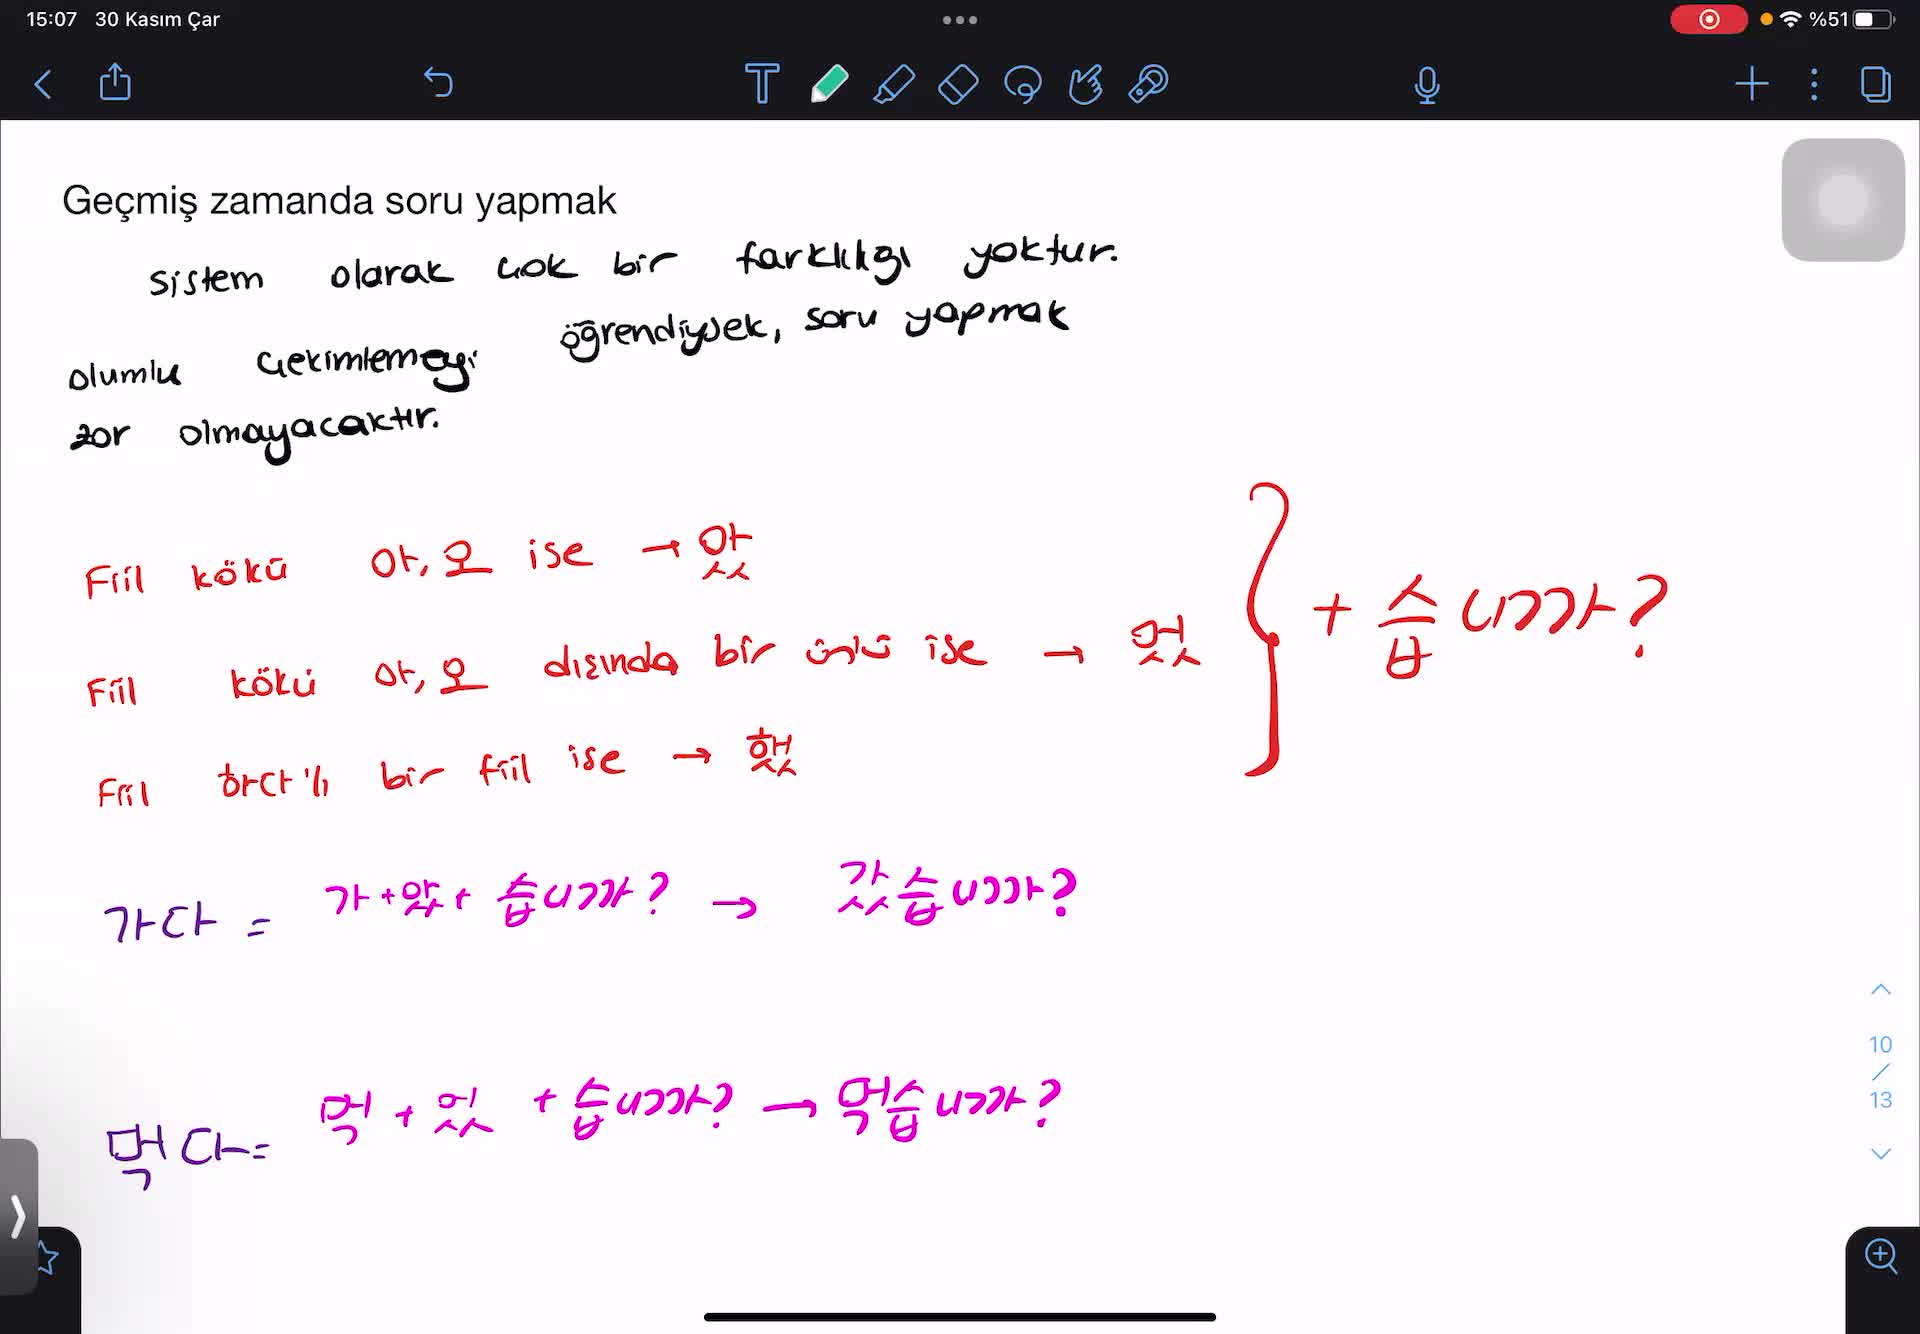 15:07 30 Kasım Çar
%51
Geçmiş zamanda soru yapmak
sistem olarak çok bir farklılığı yoktur.
olumlu çekimlemeyi öğrendiysek, soru yapmak
zor olmayacaktır.
Fiil kökü 아, 오 ise → 았
Fiil kökü 아, 오 dışında bir ünlü ise → 었
Fiil 하다'lı bir fiil ise → 했
+ 습니까?
가다 = 가 + 았 + 습니까? → 갔습니까?
먹다 = 먹 + 었 + 습니까? → 먹습니까?
10
/
13